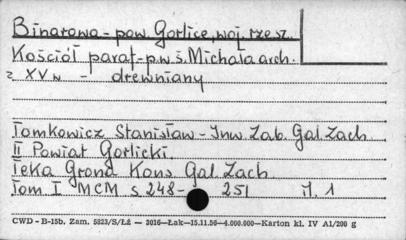 Binarowa - pow. Gorlice, woj. rzesz.
Kościół paraf. - p.w. ś. Michała arch.
z XV w - drewniany
Tomkowicz Stanisław - Inw. Zab. Gal. Zach
II Powiat Gorlicki.
Teka Grona Kons. Gal. Zach
Tom I MCM s 248- 251 il. 1
CWD - B-15b. Zam. 5823/S/Łż — 3016—Łak—15.11.56—4.000.000—Karton kl. IV A1/200 g